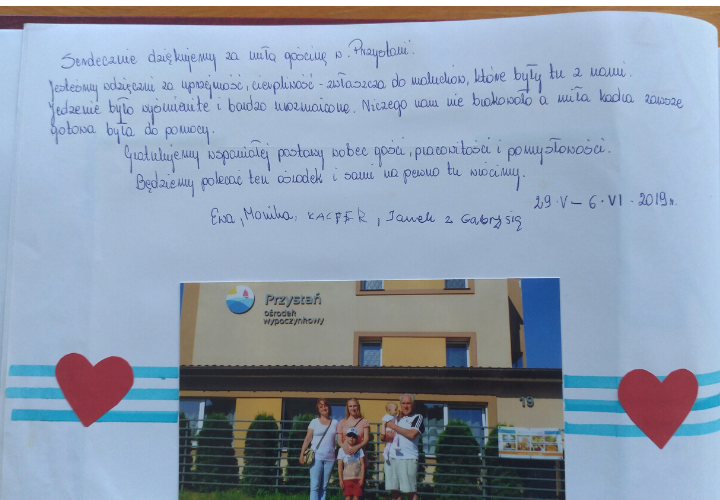 Serdecznie dziękujemy za miłą gościnę w "Przystani".
Jesteśmy wdzięczni za uprzejmość, cierpliwość - zwłaszcza do maluchów, które były tu z nami.
Jedzenie było wyśmienite i bardzo urozmaicone. Niczego nam nie brakowało a miła kadra zawsze
gotowa była do pomocy.
Gratulujemy wspaniałej postawy wobec gości, pracowitości i pomysłowości.
Będziemy polecać ten ośrodek i sami na pewno tu wrócimy.
29.V - 6.VI.2019r.
Ewa, Monika, KACPER, Janek z Gabrysią
Przystań
ośrodek
wypoczynkowy
19